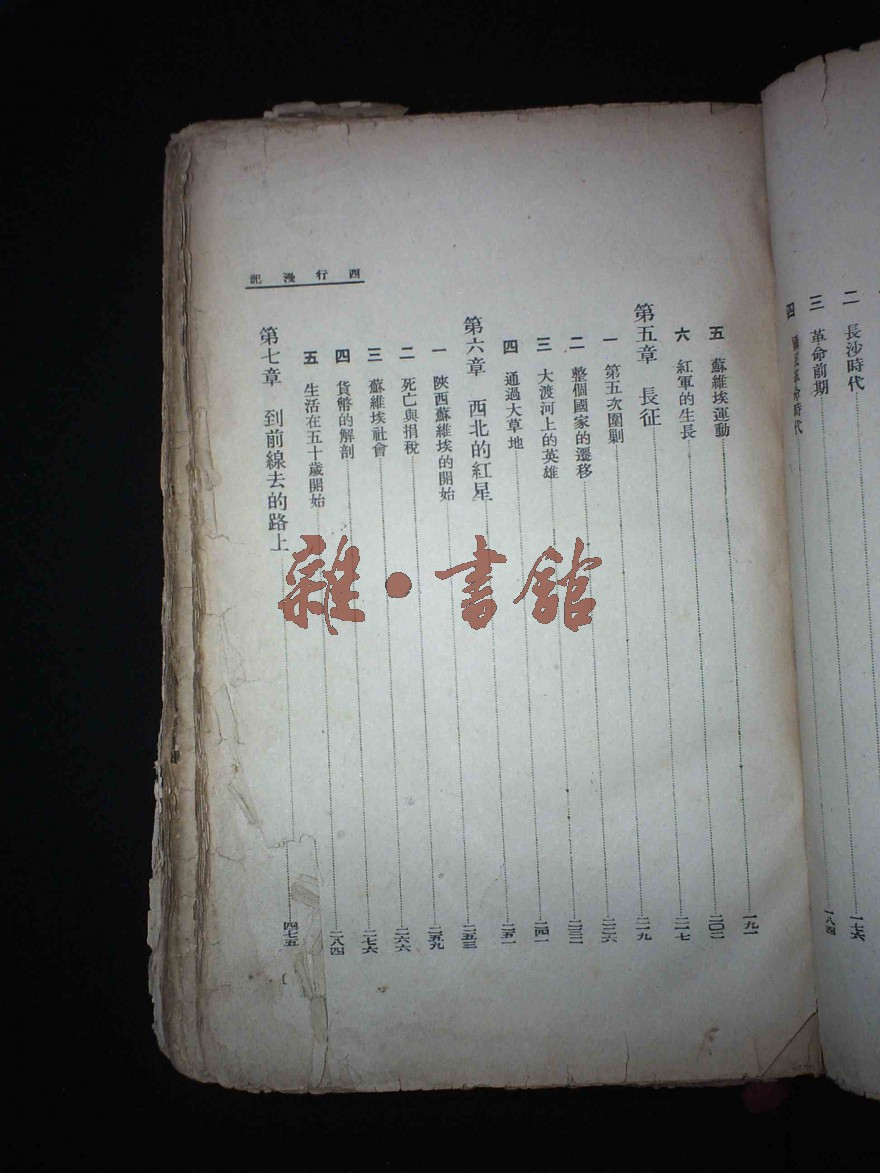 二 長沙時代
三 革命前期 一七六
四 國民革命時代 一八四
西行漫記
五 蘇維埃運動 一九一
六 紅軍的生長 二〇二
第五章 長征 二一七
一 第五次圍剿 二一九
二 整個國家的遷移 二二六
三 大渡河上的英雄 二三二
四 通過大草地 二四一
第六章 西北的紅星 二五一
一 陝西蘇維埃的開始 二五三
二 死亡與捐稅 二五九
三 蘇維埃社會 二六六
四 貨幣的解剖 二七六
五 生活在五十歲開始 二八四
第七章 到前線去的路上 四七五
雜·書館